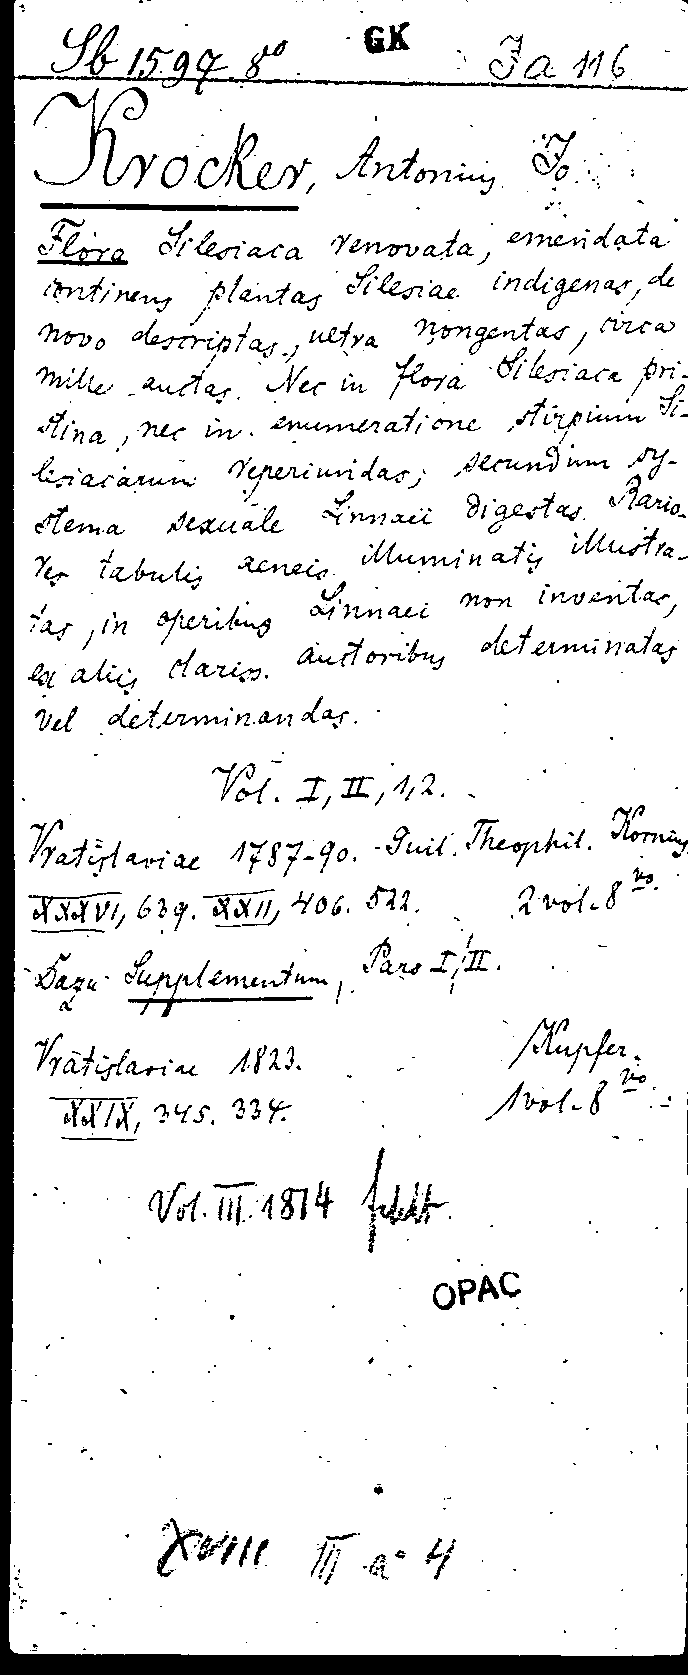 GK
Sb 1597 8° Ja 116
Krocker, Antonius Jo.
Flora Silesiaca renovata, emendata
continens plantas Silesiae indigenas, de
novo descriptas, ultra nongentas, circa
mille auctas. Nec in flora Silesiaca pri-
stina, nec in enumeratione stirpium Si-
lesiacarum reperiundas; secundum sy-
stema sexuale Linnaei digestas. Rario-
res tabulis aeneis illuminatis illustra-
tas, in operibus Linnaei non inventas,
ex aliis clariss. auctoribus determinatas
vel determinandas.
Vol. I, II, 1,2.
Vratislaviae 1787-90. Guil. Theophil. Kornius
XXXVI, 639. XXII, 406. 522. 2 vol. 8vo.
Dazu Supplementum, Pars I/II.
Vratislaviae 1823. Kupfer.
XXIX, 345. 334. 1 vol. 8vo.
Vol. III 1814 fehlt
OPAC
XVIII III a 4